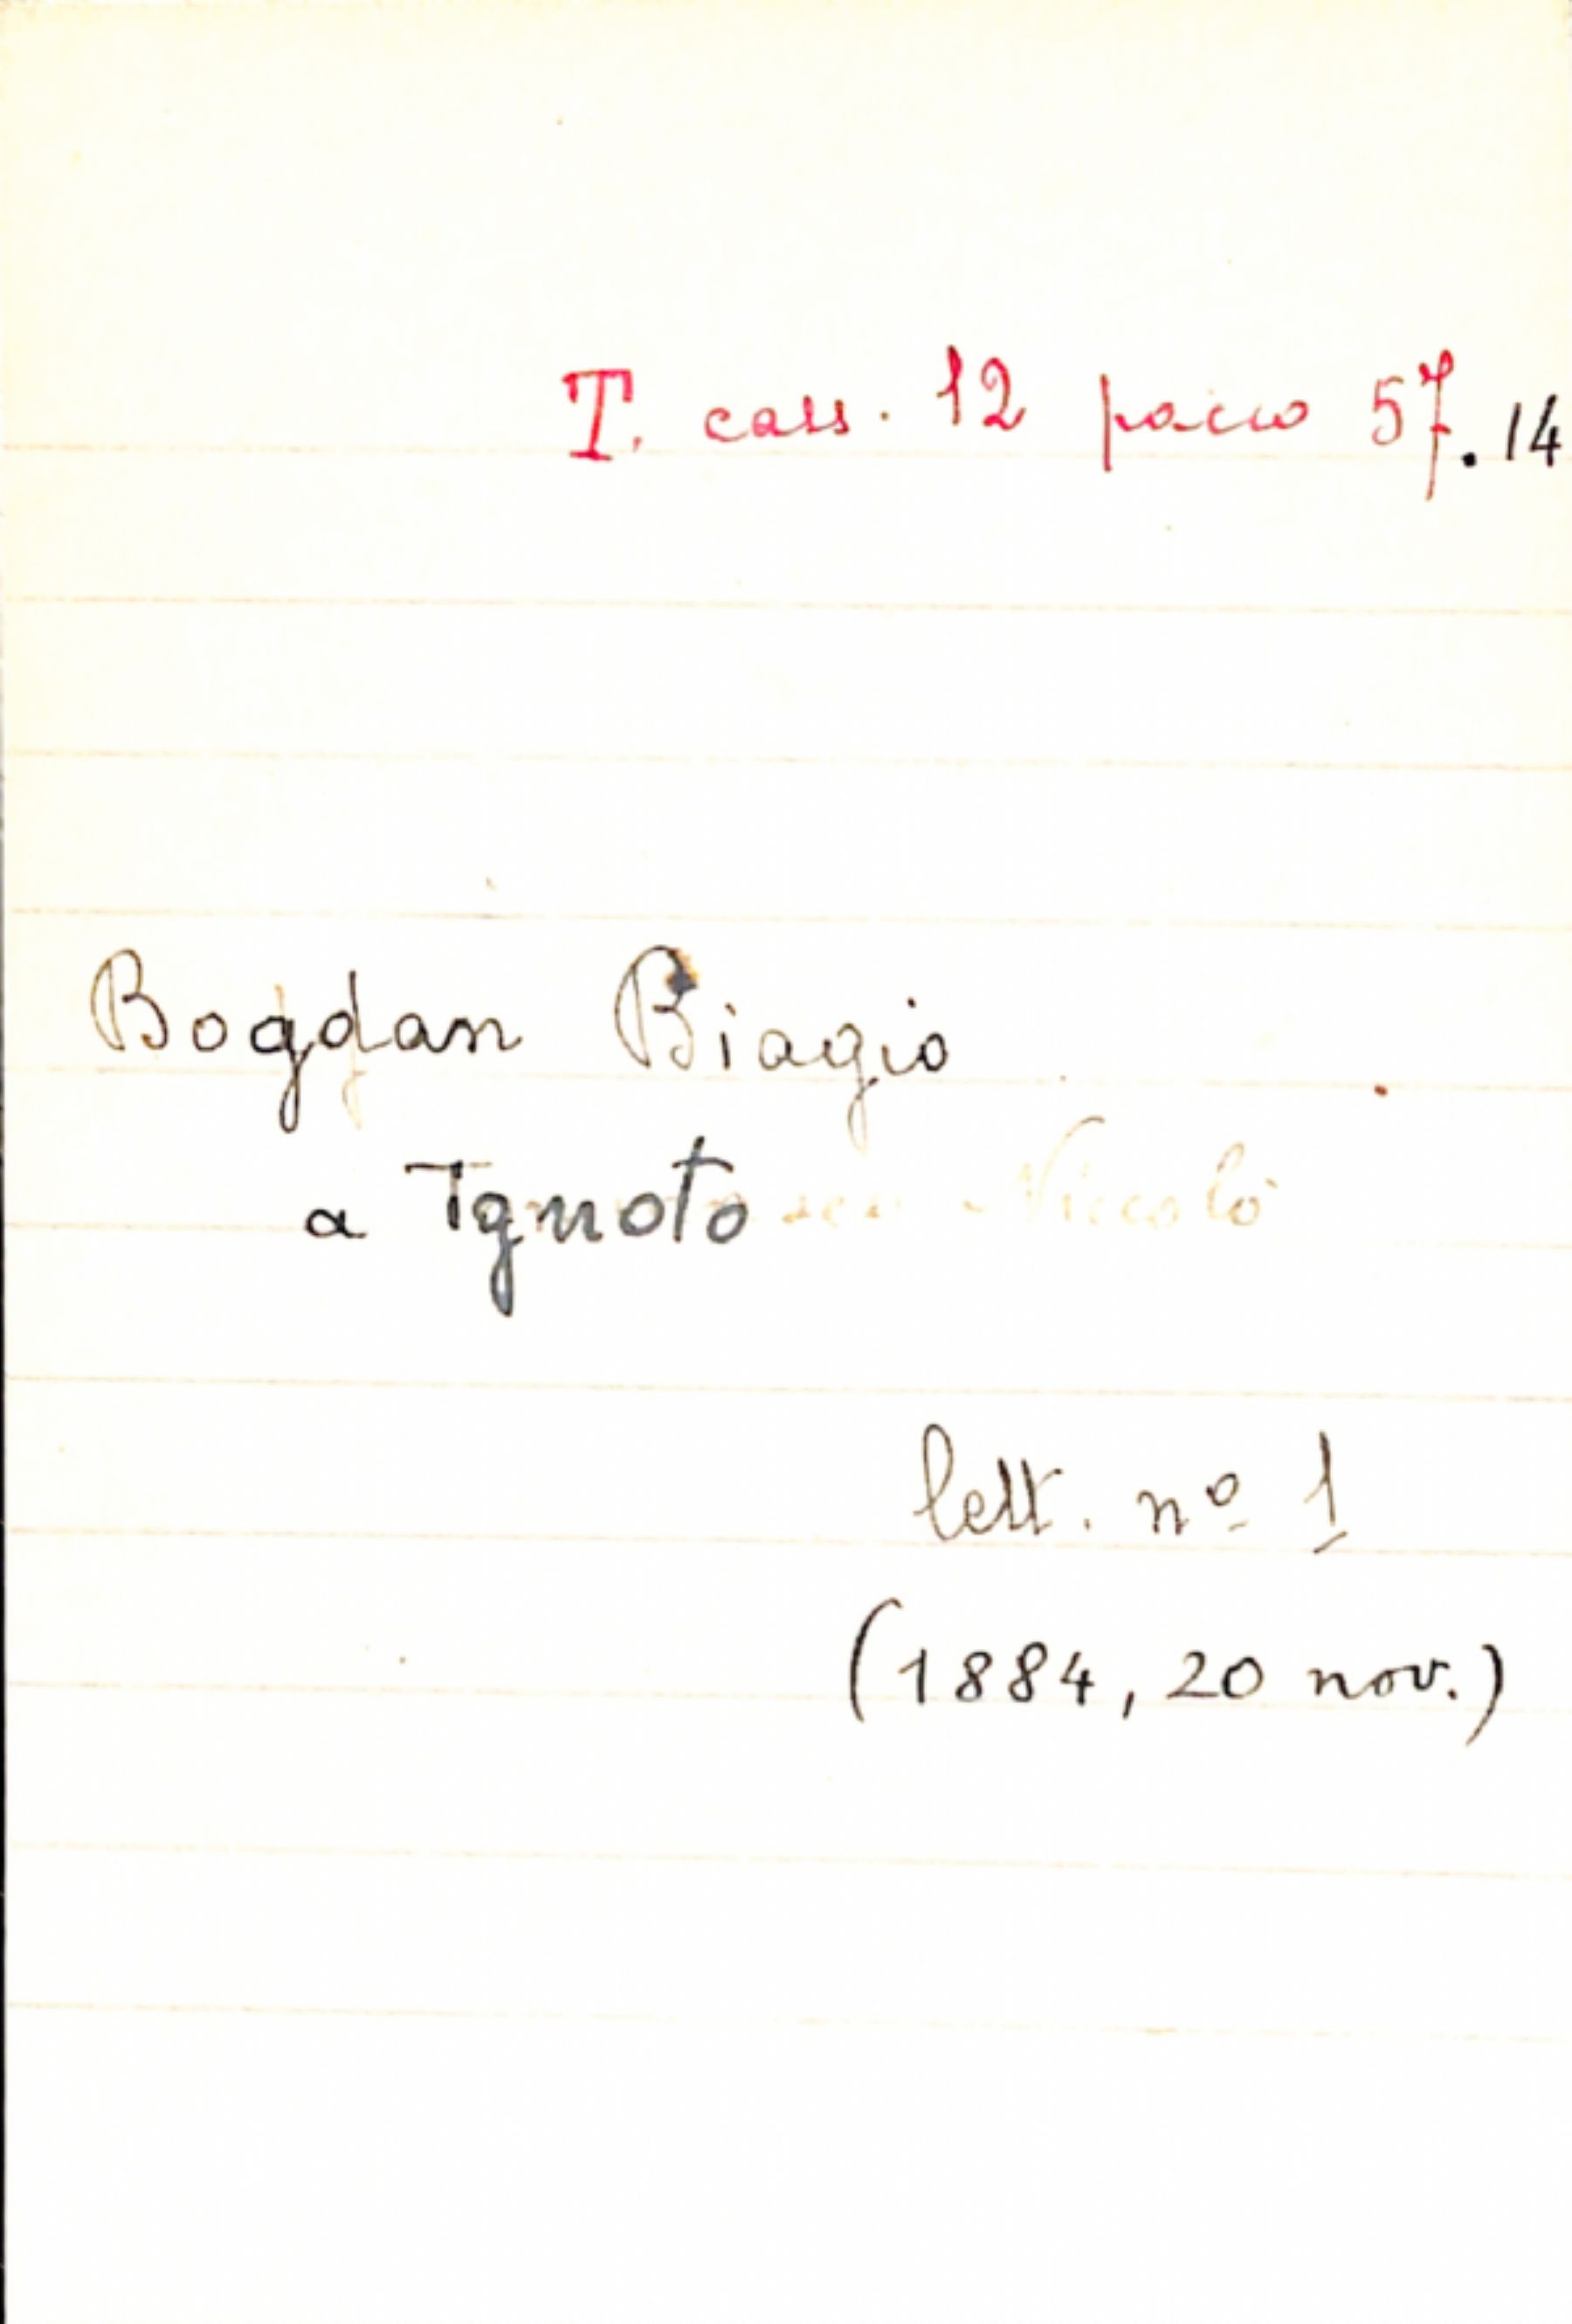 T. cass. 12 pacco 57.14
Bogdan Biagio
a Ignoto Niccolò
lett. nº 1
(1884, 20 nov.)